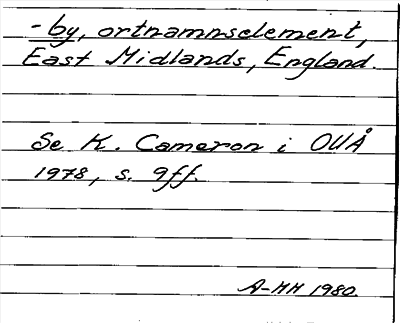 -by, ortnamnselement,
East Midlands, England.
Se K. Cameron i OUÅ
1978, s. 9ff.
A-HH 1980.